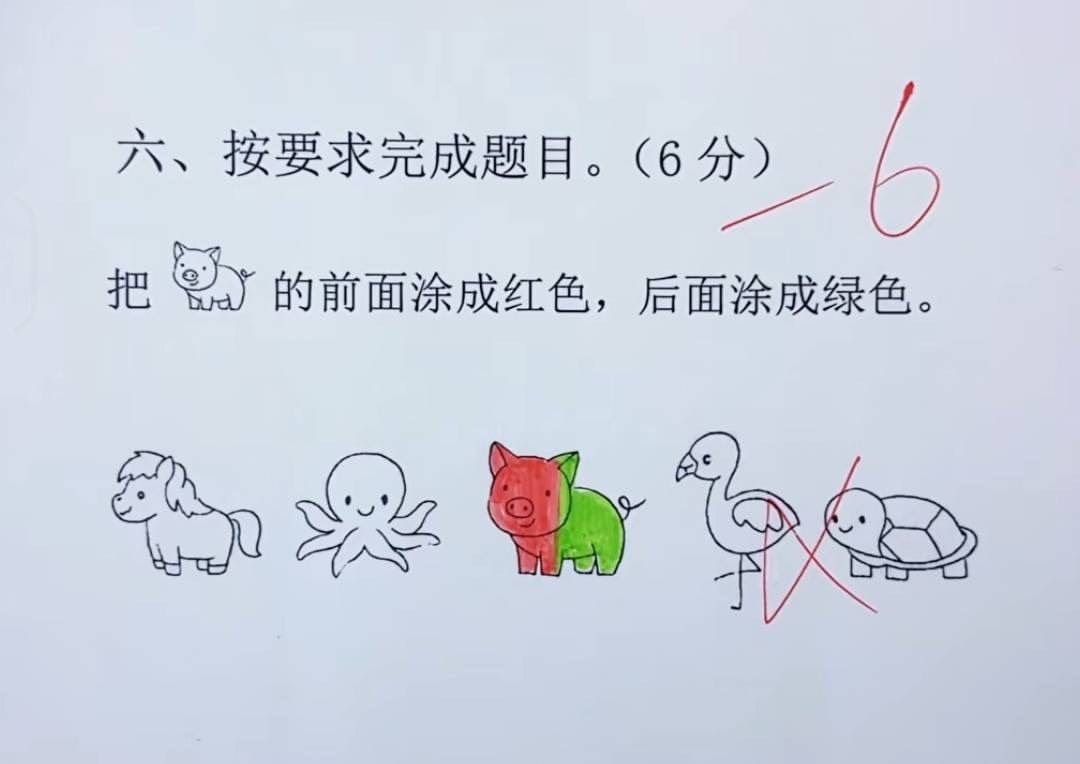 六、按要求完成题目。（6 分）
-6
把 的前面涂成红色，后面涂成绿色。